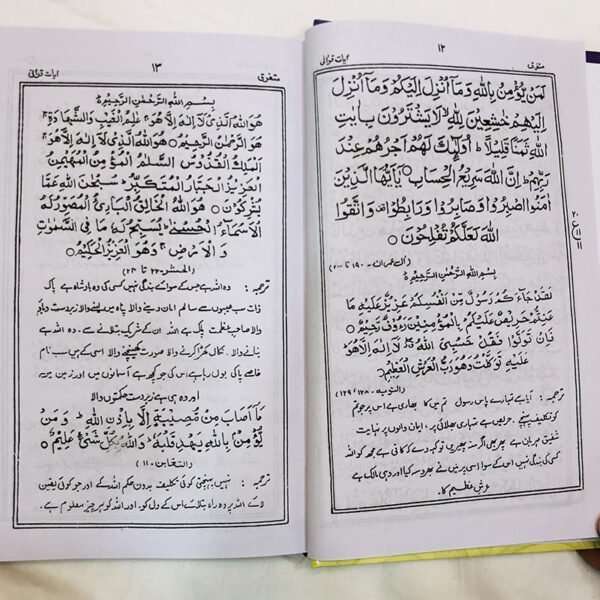 ۱۲
متفرق
آیات قرآنی
لَمَنْ يُّؤْمِنُ بِاللّٰهِ وَمَآ اُنْزِلَ اِلَيْكُمْ وَمَآ اُنْزِلَ
اِلَيْهِمْ خٰشِعِيْنَ لِلّٰهِ لَا يَشْتَرُوْنَ بِاٰيٰتِ
اللّٰهِ ثَمَنًا قَلِيْلًا ؕ اُولٰٓئِكَ لَهُمْ اَجْرُهُمْ عِنْدَ
رَبِّهِمْ ؕ اِنَّ اللّٰهَ سَرِيْعُ الْحِسَابِ ○ يٰٓاَيُّهَا الَّذِيْنَ
اٰمَنُوا اصْبِرُوْا وَصَابِرُوْا وَرَابِطُوْا وَاتَّقُوا
اللّٰهَ لَعَلَّكُمْ تُفْلِحُوْنَ ○
(آل عمران - ۱۹۰ تا ۲۰۰)
بِسْمِ اللّٰهِ الرَّحْمٰنِ الرَّحِيْمِ
لَقَدْ جَآءَكُمْ رَسُوْلٌ مِّنْ اَنْفُسِكُمْ عَزِيْزٌ عَلَيْهِ مَا
عَنِتُّمْ حَرِيْصٌ عَلَيْكُمْ بِالْمُؤْمِنِيْنَ رَءُوْفٌ رَّحِيْمٌ ○
فَاِنْ تَوَلَّوْا فَقُلْ حَسْبِيَ اللّٰهُ لَآ اِلٰهَ اِلَّا هُوَ
عَلَيْهِ تَوَكَّلْتُ وَهُوَ رَبُّ الْعَرْشِ الْعَظِيْمِ ○
(التوبہ - ۱۲۸، ۱۲۹)
ترجمہ : آیا ہے تمہارے پاس رسول تم میں کا بھاری ہے اس پر جو تم
کو تکلیف پہنچے۔ حریص ہے تمہاری بھلائی پر، ایمان والوں پر نہایت
شفیق مہربان ہے پھر بھی اگر منہ پھیریں تو کہہ دے کہ کافی ہے مجھ کو اللہ
کسی کی بندگی نہیں اس کے سوا اسی پر میں نے بھروسہ کیا اور وہی مالک ہے
عرش عظیم کا۔
۱۳
متفرق
آیات قرآنی
بِسْمِ اللّٰهِ الرَّحْمٰنِ الرَّحِيْمِ
هُوَ اللّٰهُ الَّذِيْ لَآ اِلٰهَ اِلَّا هُوَ ۚ عٰلِمُ الْغَيْبِ وَالشَّهَادَةِ ۚ
هُوَ الرَّحْمٰنُ الرَّحِيْمُ ○ هُوَ اللّٰهُ الَّذِيْ لَآ اِلٰهَ اِلَّا هُوَ ۚ
اَلْمَلِكُ الْقُدُّوْسُ السَّلٰمُ الْمُؤْمِنُ الْمُهَيْمِنُ
الْعَزِيْزُ الْجَبَّارُ الْمُتَكَبِّرُ ؕ سُبْحٰنَ اللّٰهِ عَمَّا
يُشْرِكُوْنَ ○ هُوَ اللّٰهُ الْخَالِقُ الْبَارِئُ الْمُصَوِّرُ لَهُ
الْاَسْمَآءُ الْحُسْنٰى ؕ يُسَبِّحُ لَهٗ مَا فِي السَّمٰوٰتِ
وَالْاَرْضِ ۚ وَهُوَ الْعَزِيْزُ الْحَكِيْمُ ○
(الحشر - ۲۲ تا ۲۴)
ترجمہ : وہ اللہ ہے جس کے سوائے بندگی نہیں کسی کی وہ بادشاہ ہے پاک
ذات سب عیبوں سے سالم امان دینے والا پناہ میں لینے والا زبردست دباؤ
والا صاحب عظمت پاک ہے اللہ ان کے شریک بتلانے سے۔ وہ اللہ ہے
بنانے والا۔ نکال کھڑا کرنے والا صورت کھینچنے والا اسی کے ہیں سب نام
خاصے پاکی بول رہا ہے اس کی جو کچھ ہے آسمانوں میں اور زمین میں
اور وہی ہے زبردست حکمتوں والا
مَآ اَصَابَ مِنْ مُّصِيْبَةٍ اِلَّا بِاِذْنِ اللّٰهِ ؕ وَمَنْ
يُّؤْمِنْۢ بِاللّٰهِ يَهْدِ قَلْبَهٗ ؕ وَاللّٰهُ بِكُلِّ شَيْءٍ عَلِيْمٌ ○
(التغابن - ۱۱)
ترجمہ : نہیں پہنچتی کوئی تکلیف بدون حکم اللہ کے اور جو کوئی یقین
لائے اللہ پر وہ راہ بتلائے اس کے دل کو۔ اور اللہ کو ہر چیز معلوم ہے۔